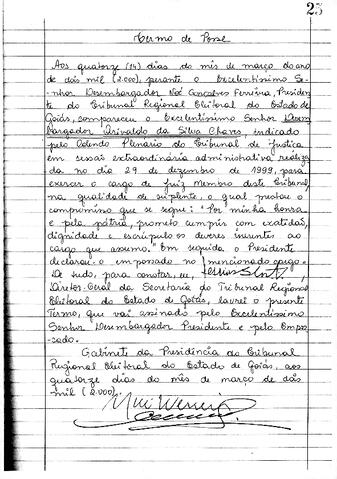 23
Termo de Posse
Aos quatorze (14) dias do mês de março do ano
de dois mil (2.000), perante o Excelentíssimo Se-
nhor Desembargador Noé Gonçalves Ferreira, Presiden-
te do Tribunal Regional Eleitoral do Estado de
Goiás, compareceu o Excelentíssimo Senhor Desem-
bargador Arivaldo da Silva Chaves, indicado
pelo Colendo Plenário do Tribunal de Justiça
em sessão extraordinária administrativa realiza-
da no dia 29 de dezembro de 1999, para
exercer o cargo de Juiz Membro deste Tribunal,
na qualidade de suplente, o qual prestou o
compromisso que se segue: "Por minha honra
e pela pátria, prometo cumprir com exatidão,
dignidade e escrúpulo os deveres inerentes ao
cargo que assumo." Em seguida o Presidente
declarou-o empossado no mencionado cargo.
De tudo, para constar, eu,
Diretor-Geral da Secretaria do Tribunal Regional
Eleitoral do Estado de Goiás, lavrei o presente
Termo, que vai assinado pelo Excelentíssimo
Senhor Desembargador Presidente e pelo Empos-
sado.
Gabinete da Presidência do Tribunal
Regional Eleitoral do Estado de Goiás, aos
quatorze dias do mês de março de dois
mil (2.000).